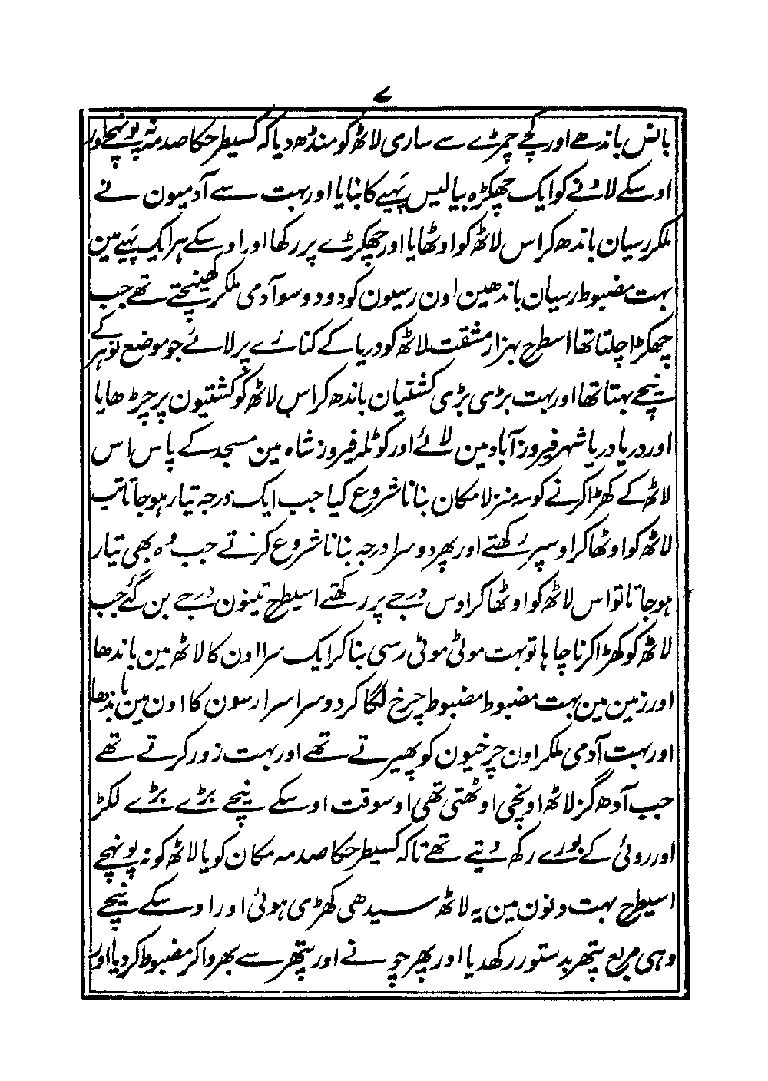 ۷
بانس باندھے اور کچے چمڑے سے ساری لاٹھ کو منڈھ دیا کہ کسیطرحکا صدمہ نہ پونہچے اور
اوسکے لانے کو ایک چھکڑہ بیالیس پہیے کا بنایا اور بہت سے آدمیون نے
ملکر رسیان باندھ کر اس لاٹھ کو اوٹھایا اور چھکڑے پر رکھا اور اوسکے ہر ایک پہیے مین
بہت مضبوط رسیان باندھین اون رسیون کو دو دو سو آدمی ملکر کھینچتے تھے جب
چھکڑا چلتا تھا اسطرح بہزار مشقت لاٹھ کو دریا کے کنارے پر لائے جو موضع نوہر کے
نیچے بہتا تھا اور بہت بڑی بڑی کشتیان باندھ کر اس لاٹھ کو کشتیون پر چڑھایا
اور دریا دریا شہر فیروزآباد مین لائے اور کوٹلہ فیروز شاہ مین مسجد کے پاس اس
لاٹھ کے کھڑا کرنے کو سہ منزلا مکان بنانا شروع کیا جب ایک درجہ تیار ہوجاتا تب
لاٹھ کو اوٹھا کر اوسپر رکھتے اور پھر دوسرا درجہ بنانا شروع کرتے جب وہ بھی تیار
ہوجاتا تو اس لاٹھ کو اوٹھا کر اوس درجے پر رکھتے اسیطرح تینون درجے بن گئے جب
لاٹھ کو کھڑا کرنا چاہا تو بہت موٹی موٹی رسی بنا کر ایک سرا اون کا لاٹھ مین باندھا
اور زمین مین بہت مضبوط مضبوط چرخ لگا کر دوسرا سرا رسون کا اون مین باندھا
اور بہت آدمی ملکر اون چرخیون کو پھیرتے تھے اور بہت زور کرتے تھے
جب آدھ گز لاٹھ اونچی اوٹھتی تھی اوسوقت اوسکے نیچے بڑے بڑے لکڑ
اور روئی کے بورے رکھ دیتے تھے تاکہ کسیطرحکا صدمہ مکان کو یا لاٹھ کو نہ پونہچے
اسیطرح بہت دنون مین یہ لاٹھ سیدھی کھڑی ہوئی اور اوسکے نیچے
وہی مربع پتھر بدستور رکھدیا اور پھر چونے اور پتھر سے بھروا کر مضبوط کردیا اور